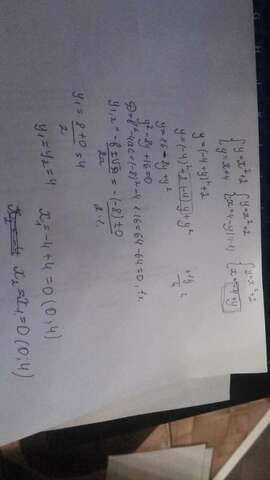 {y=x²+2 {y=x²+2 {y=x²+2
{y=x+4 {x+4=y|(-1) {x=-4+y
y=(-4+y)²+2
y=(-4)²+2·(-4)·y+y²
y=16-8y+y²
y²-8y+16=0
D=b²-4ac=(-8)²-4·1·16=64-64=0, 1x
y₁,₂=-b±√D/2a=-(-8)±0/2·1
y₁=8+0/2=4
y₁=y₂=4 x₁=-4+4=0 (0;4)
x₂=x₁=0 (0;4)